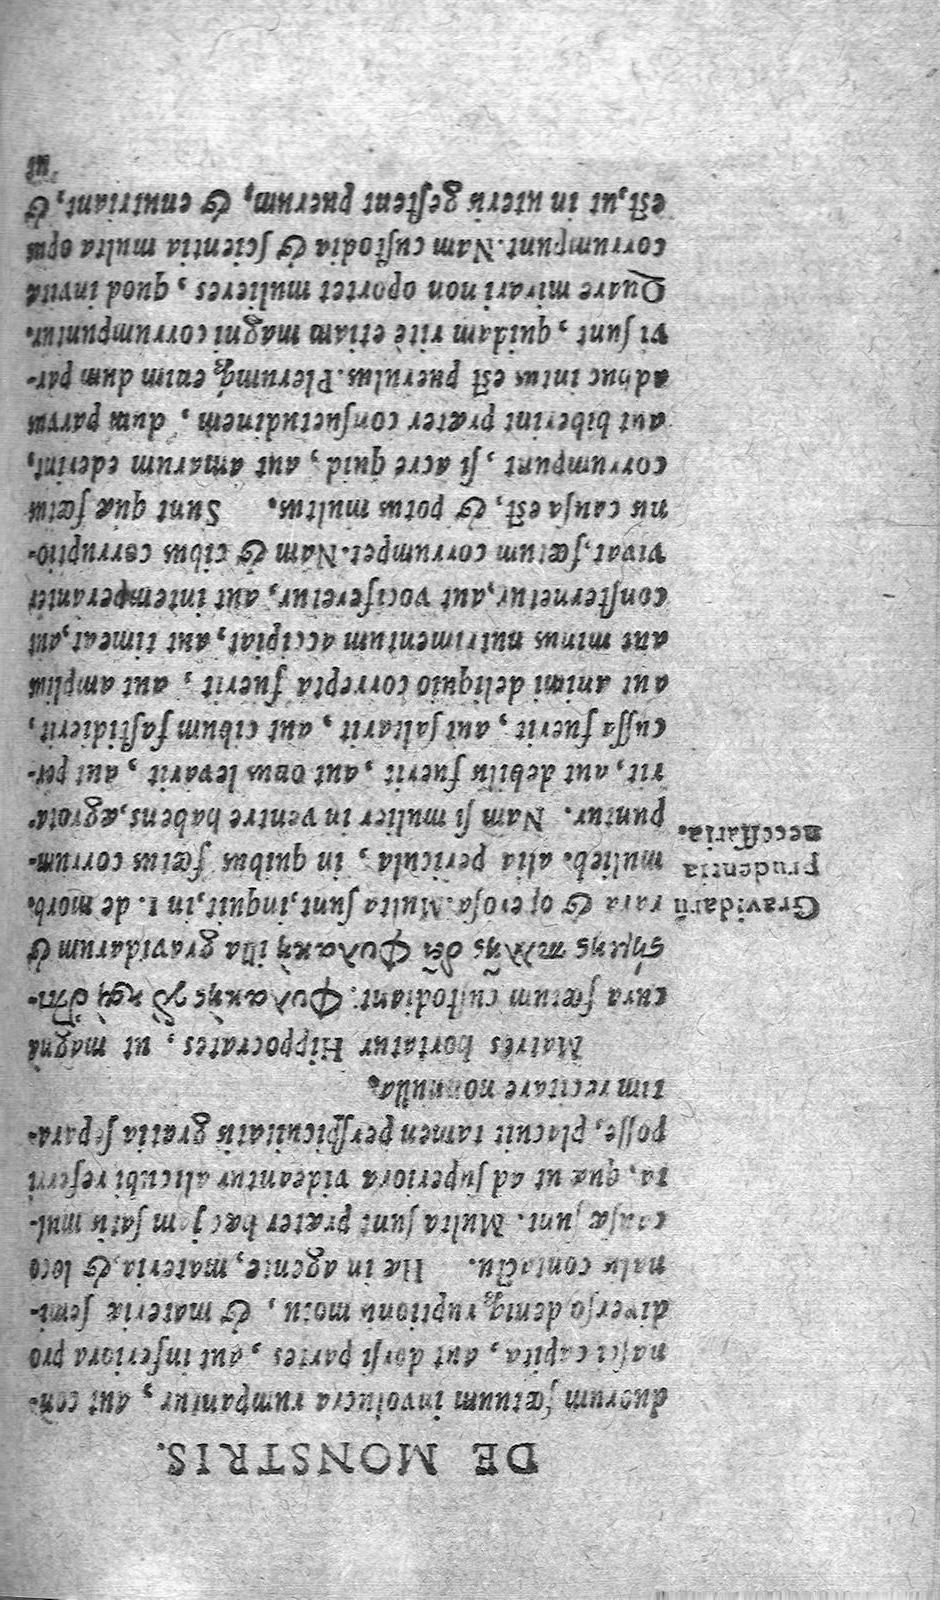 DE MONSTRIS.
duorum fœtuum involucra rumpantur, aut con-
nasci capita, aut dorsi partes, aut inferiora pro
diverso deniq; ruptionis motu, & materiæ semi-
nalis contactu. Hæ in agente, materia, & loco
causæ sunt. Multa sunt præter hæc jam satis mul-
ta, quæ ut ad superiora videantur alicubi referri
posse, placuit tamen perspicuitatis gratia separa-
tim recitare nonnulla.
Matres hortatur Hippocrates, ut magnâ
cura fœtum custodiant: Φυλακῆς γὸ καὶ ἐπι-
ςήμης πολλῆς δεῖ Φυλακὴ illa gravidarum &
rara & operosa. Multa sunt, inquit, in 1. de morb.
mulieb. alia pericula, in quibus fœtus corrum-
puntur. Nam si mulier in ventre habens, ægrota-
rit, aut debilis fuerit, aut onus levarit, aut per-
cussa fuerit, aut saltarit, aut cibum fastidierit,
aut animi deliquio correpta fuerit, aut amplius
aut minus nutrimentum accipiat, aut timeat, aut
consternetur, aut vociferetur, aut intemperanter
vivat, fœtum corrumpet. Nam & cibus corruptio-
nis causa est, & potus multus. Sunt quæ fœtus
corrumpunt, si acre quid, aut amarum ederint,
aut biberint præter consuetudinem, dum parvus
adhuc intus est puerulus. Plerumq; enim dum par-
vi sunt, quidam rite etiam magni corrumpuntur.
Quare mirari non oportet mulieres, quod invitæ
corrumpunt. Nam custodia & scientia multa opus
est, ut in uteris gestent puerum, & enutriant, &
ut
Gravidarū
prudentia
necessaria.